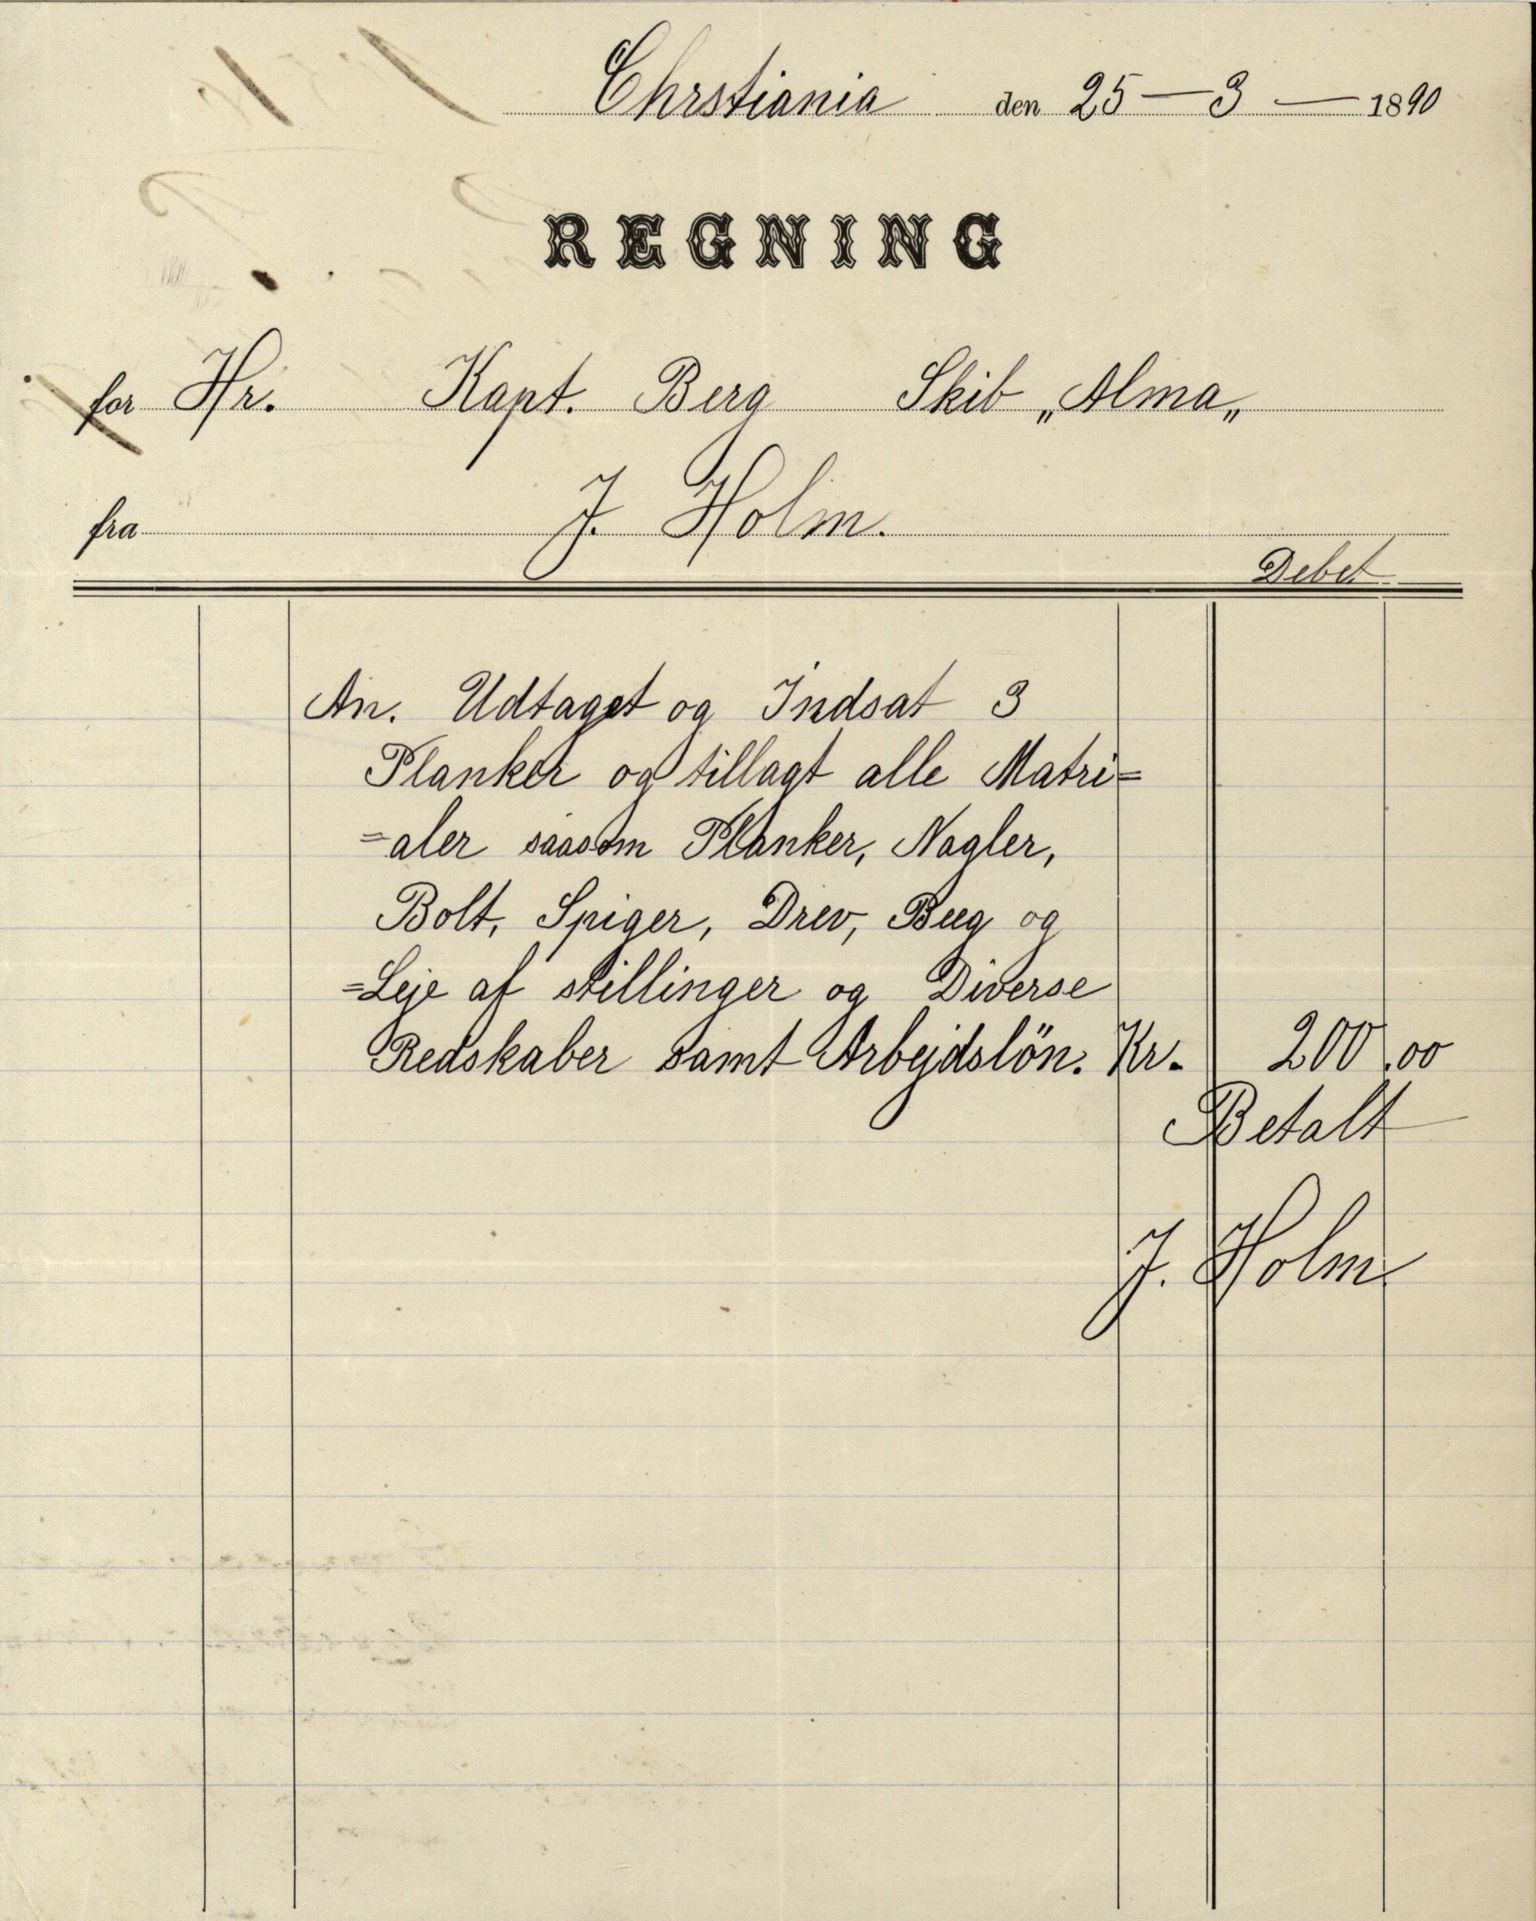 Chrstiania den 25 — 3 — 1890
REGNING
for Hr. Kapt. Berg Skib „Alma„
fra J. Holm.
Debet
An. Udtaget og Indsat 3
Planker og tillagt alle Matri=
=aler saasom Planker, Nagler,
Bolt, Spiger, Drev, Beeg og
=Leje af stillinger og Diverse
Redskaber samt Arbejdslön. Kr. 200.00
Betalt
J. Holm.